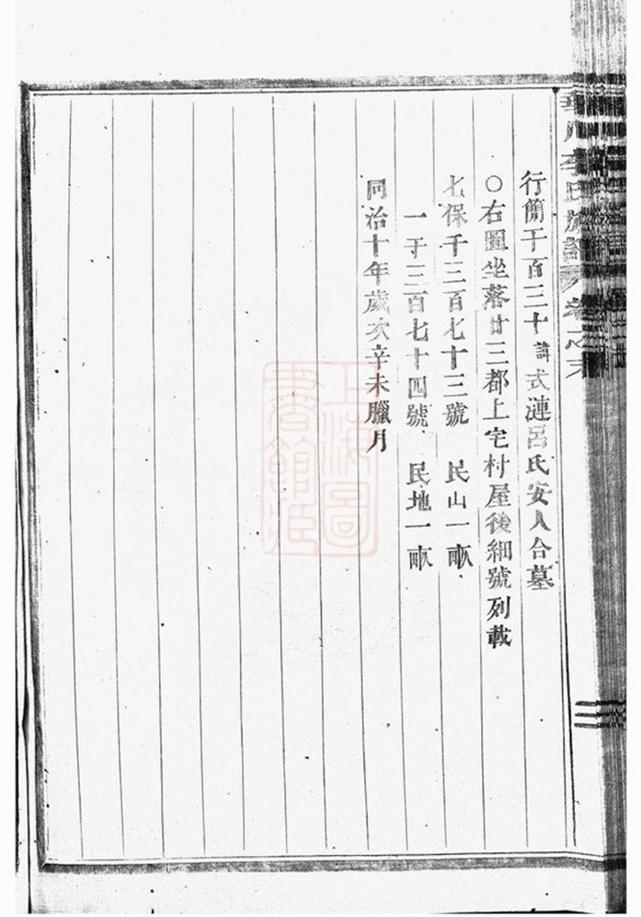 行簡千百三十諱式漣呂氏安人合墓
○右圖坐落廿三都上宅村屋後細號列載
七保千三百七十三號 民山一畝
一千三百七十四號 民地一畝
同治十年歲次辛未臘月
李氏族譜
上海圖書館藏